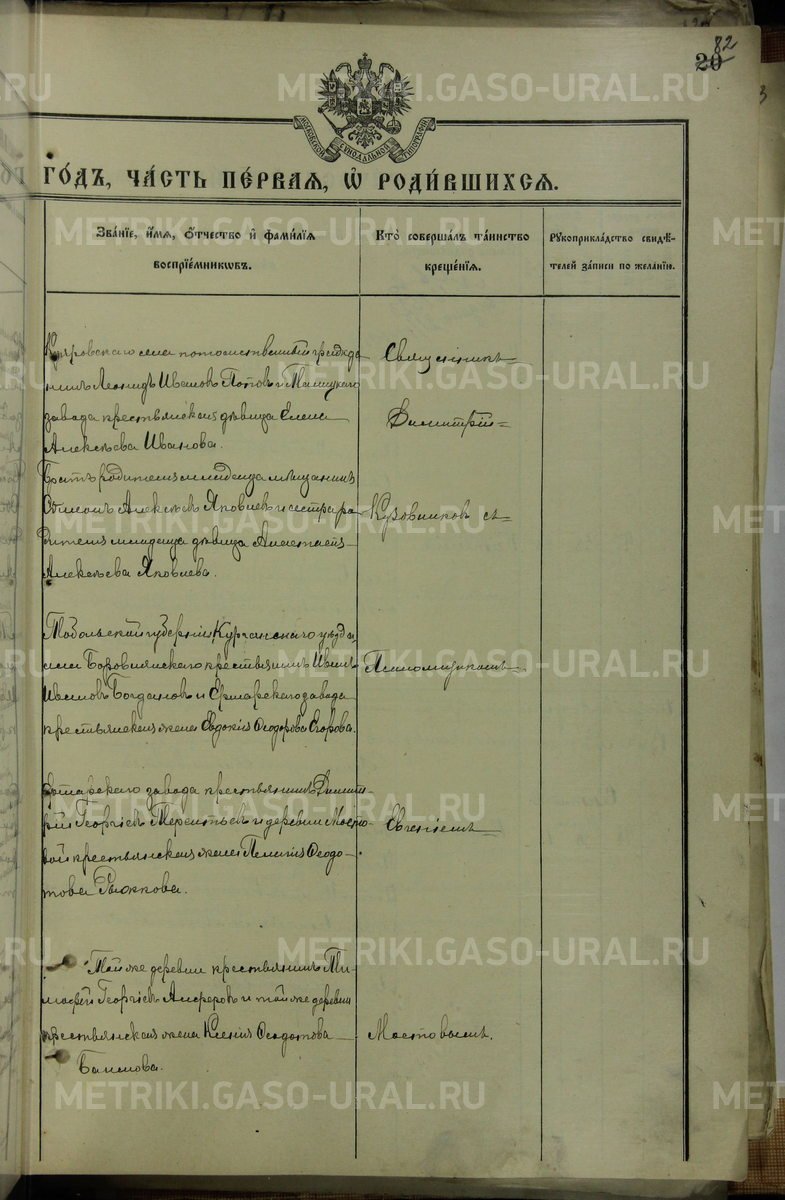 82
20
МОСКОВСКОЙ СѴНОДАЛЬНОЙ ТИПОГРАФІИ
ГО́ДЪ, ЧА́СТЬ ПЕ́РВАЯ, Ѡ҆ РОДИ́ВШИХСЯ.
Зва́нїе, и҆́мя, ѻ҆́тчество и҆ фами́лїя
воспрїе́мникѡвъ.
Кто̀ соверша́лъ та́инство
креще́нїя.
Рꙋкоприкла́дство свидѣ́-
телей за́писи по жела́нїю.
села потомственный гражда
нинъ Леонидъ Ивановъ Поповъ и Талицкаго
завода крестьянская дѣвица Елена
Алексѣева Иванова.
Священникъ
Димитрій
Братъ родителя младенца мѣщанинъ
Алексѣевъ Яковлевъ и сестра ро
дителя младенца дѣвица Анастасія
Алексѣева Яковлева.
Кузовниковъ съ
Тобольской губерніи Курганскаго уѣзда
села Боровлянскаго крестьянинъ Иванъ
Ивановъ Богдановъ и Ертарскаго завода
крестьянская жена Евдокія Ѳеодорова Егорова.
Псаломщикомъ
Ертарскаго завода крестьянинъ Димит-
рій Георгіевъ Терентьевъ и деревни Мосто-
вой крестьянская жена Пелагія Ѳеодо-
това
Евгеніемъ
Той же деревни крестьянинъ Ти-
моѳей Георгіевъ Алферовъ и той же деревни
крестьянская жена Ксенія Ѳеодотова
Мостовымъ.
METRIKI.GASO-URAL.RU